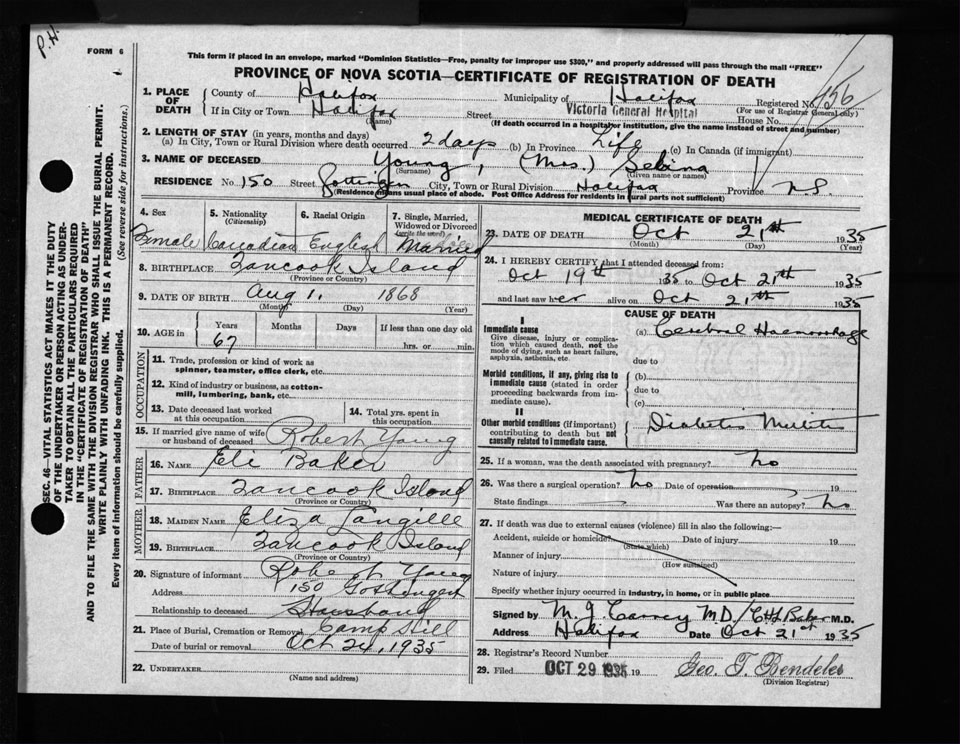 P.H.
FORM 6
This form if placed in an envelope, marked "Dominion Statistics—Free, penalty for improper use $300," and properly addressed will pass through the mail "FREE"
PROVINCE OF NOVA SCOTIA—CERTIFICATE OF REGISTRATION OF DEATH
1. PLACE OF DEATH County of Halifax Municipality of Halifax Registered No. 156
(For use of Registrar General only)
If in City or Town Halifax (Name) Street Victoria General Hospital House No.
(If death occurred in a hospital or institution, give the name instead of street and number)
2. LENGTH OF STAY (in years, months and days)
(a) In City, Town or Rural Division where death occurred 2 days (b) In Province Life (c) In Canada (if immigrant)
3. NAME OF DECEASED Young, (Mrs.) Sebina
(Surname) (Given name or names)
RESIDENCE No. 150 Street Gottingen City, Town or Rural Division Halifax Province N.S.
(Residence means usual place of abode. Post Office Address for residents in rural parts not sufficient)
4. Sex 5. Nationality (Citizenship) 6. Racial Origin 7. Single, Married, Widowed or Divorced (write the word)
Female Canadian English Married
8. BIRTHPLACE Tancook Island
(Province or Country)
9. DATE OF BIRTH Aug 1. 1868
(Month) (Day) (Year)
10. AGE in Years Months Days If less than one day old
67 hrs. or min.
OCCUPATION
11. Trade, profession or kind of work as spinner, teamster, office clerk, etc.
12. Kind of industry or business, as cotton-mill, lumbering, bank, etc.
13. Date deceased last worked at this occupation 14. Total yrs. spent in this occupation
15. If married give name of wife or husband of deceased Robert Young
FATHER
16. NAME Eli Baker
17. BIRTHPLACE Tancook Island
(Province or Country)
MOTHER
18. MAIDEN NAME Eliza Langille
19. BIRTHPLACE Tancook Island
(Province or Country)
20. Signature of informant Robert Young
Address 150 Gottingen
Relationship to deceased Husband
21. Place of Burial, Cremation or Removal Camp Hill
Date of burial or removal Oct 24, 1935
22. UNDERTAKER
(Name and address)
MEDICAL CERTIFICATE OF DEATH
23. DATE OF DEATH Oct 21st 1935
(Month) (Day) (Year)
24. I HEREBY CERTIFY that I attended deceased from:
Oct 19th 1935 to Oct 21st 1935
and last saw her alive on Oct 21st 1935
CAUSE OF DEATH
I
Immediate cause (a) Cerebral Haemorrhage
Give disease, injury or complication which caused death, not the mode of dying, such as heart failure, asphyxia, asthenia, etc.
due to
Morbid conditions, if any, giving rise to immediate cause (stated in order proceeding backwards from immediate cause).
(b)
due to
(c)
II
Other morbid conditions (if important) contributing to death but not causally related to immediate cause.
Diabetis Militis
25. If a woman, was the death associated with pregnancy? No
26. Was there a surgical operation? No Date of operation 19
State findings Was there an autopsy? No
27. If death was due to external causes (violence) fill in also the following:—
Accident, suicide or homicide? Date of injury 19
(State which)
Manner of injury
(How sustained)
Nature of injury
Specify whether injury occurred in industry, in home, or in public place
Signed by M. J. Carney M.D. / C.H.L. Baker M.D.
Address Halifax Date Oct 21st 1935
28. Registrar's Record Number
29. Filed OCT 29 1935 19
(Division Registrar)
SEC. 46—VITAL STATISTICS ACT MAKES IT THE DUTY
OF THE UNDERTAKER OR PERSON ACTING AS UNDER-
TAKER TO OBTAIN ALL THE PARTICULARS REQUIRED
IN THE "CERTIFICATE OF REGISTRATION OF DEATH"
AND TO FILE THE SAME WITH THE DIVISION REGISTRAR WHO SHALL ISSUE THE BURIAL PERMIT.
WRITE PLAINLY WITH UNFADING INK. THIS IS A PERMANENT RECORD.
Every item of information should be carefully supplied. (See reverse side for instructions.)